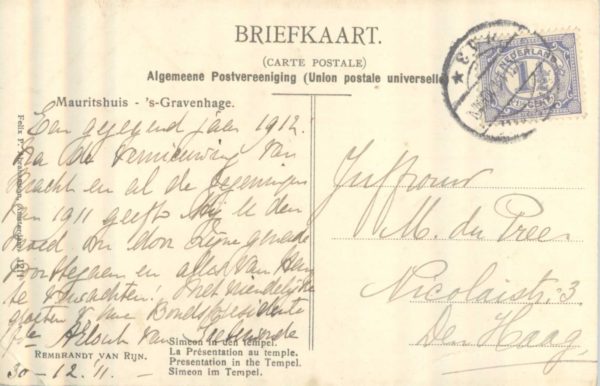 BRIEFKAART.
(CARTE POSTALE)
Algemeene Postvereeniging (Union postale universelle)
NEDERLAND
Mauritshuis - 's-Gravenhage.
Een gezegend jaar 1912!
Na de vernieuwing van
kracht en al de zegeningen
van 1911 geeft Hij U den
moed om door Zijne genade
voorttegaan en alles van Hem
te verwachten! Met vriendelijke
groeten v. uwe Bondspresidente
van
Juffrouw
M. du Pree
Nicolaistr. 3
Den Haag.
REMBRANDT VAN RIJN.
Simeon in den tempel.
La Présentation au temple.
Presentation in the Temple.
Simeon im Tempel.
30-12.'11.-